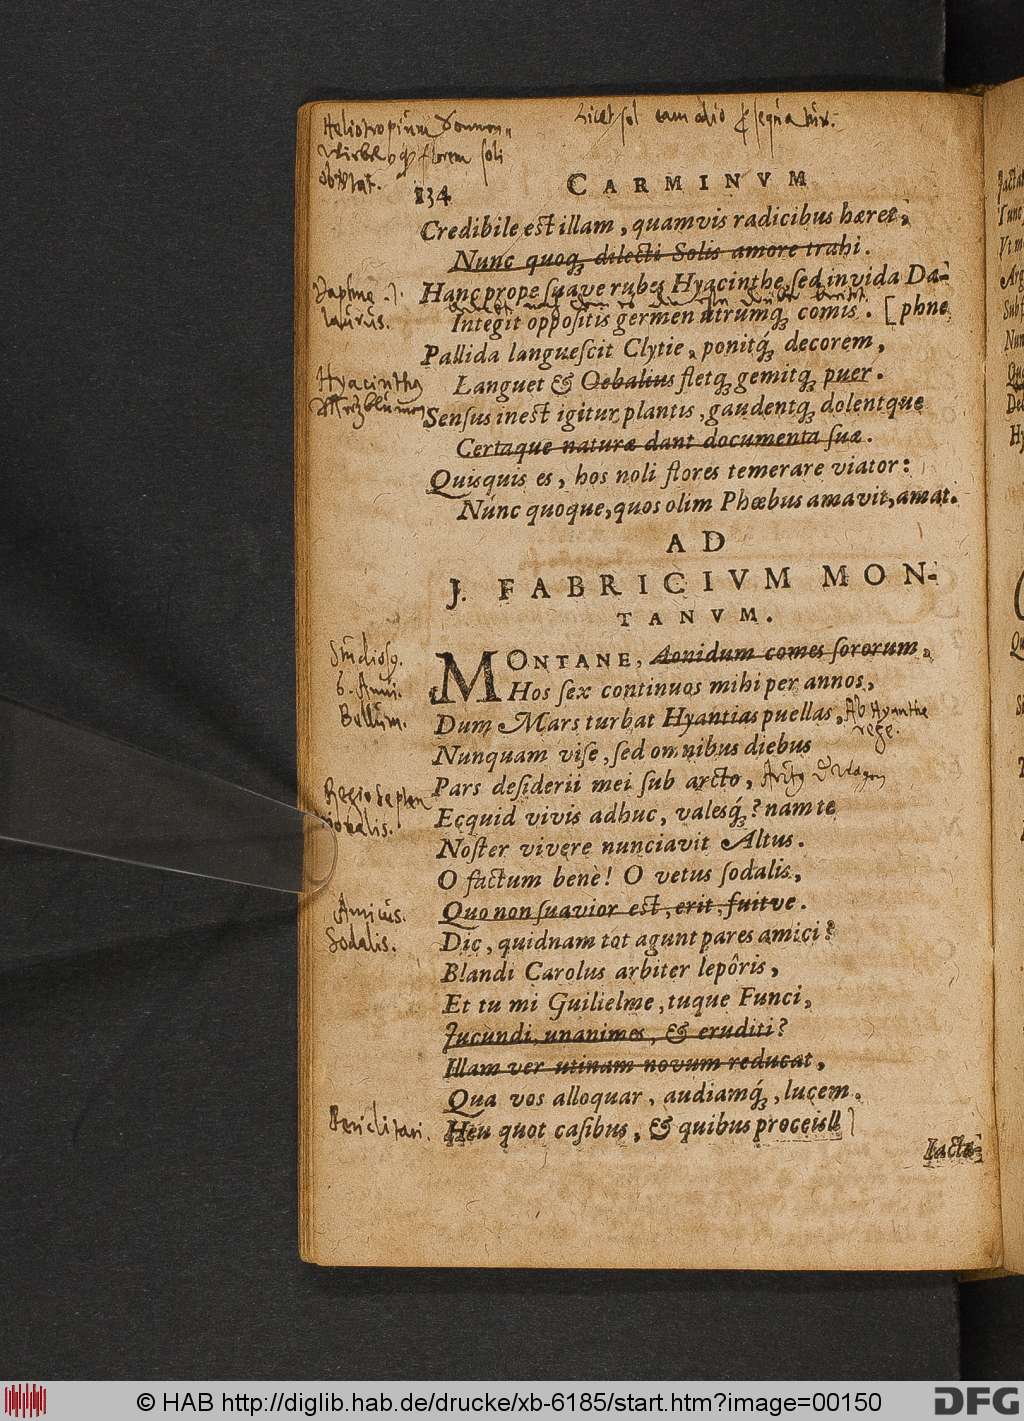 Heliotropium Sonnen-
Wirbel
florem soli
Licet sol eam odio
134
CARMINVM
Credibile est illam, quamvis radicibus hæret,
Nunc quoq; dilecti Solis amore trahi.
Hanc prope suave rubes Hyacinthe, sed invida Da-
Daphne
laurus.
Integit oppositis germen utrumq; comis. [phne
Pallida languescit Clytie, ponitq́; decorem,
Hyacinthus
Languet & Oebalius fletq; gemitq; puer.
Sensus inest igitur plantis, gaudentq; dolentque
Certaque naturæ dant documenta suæ.
Quisquis es, hos noli flores temerare viator:
Nunc quoque, quos olim Phœbus amavit, amat.
AD
J. FABRICIVM MON-
TANVM.
Studiosq.
6. Anni.
Bellum.
MONTANE, Aonidum comes sororum,
Hos sex continuos mihi per annos,
Dum Mars turbat Hyantias puellas,
Ab Hyanthe
rege.
Nunquam vise, sed omnibus diebus
Pars desiderii mei sub arcto,
Regio Septen
ionalis.
Ecquid vivis adhuc, valesq́;? nam te
Noster vivere nunciavit Altus.
O factum benè! O vetus sodalis,
Amicus.
Sodalis.
Quo non suavior est, erit, fuitve.
Dic, quidnam tot agunt pares amici?
Blandi Carolus arbiter lepôris,
Et tu mi Guilielme, tuque Funci,
Jucundi, unanimes, & eruditi?
Illam ver utinam novum reducat,
Qua vos alloquar, audiamq́;, lucem.
Periclitari.
Heu quot casibus, & quibus procellis
Iacta-
© HAB http://diglib.hab.de/drucke/xb-6185/start.htm?image=00150
DFG